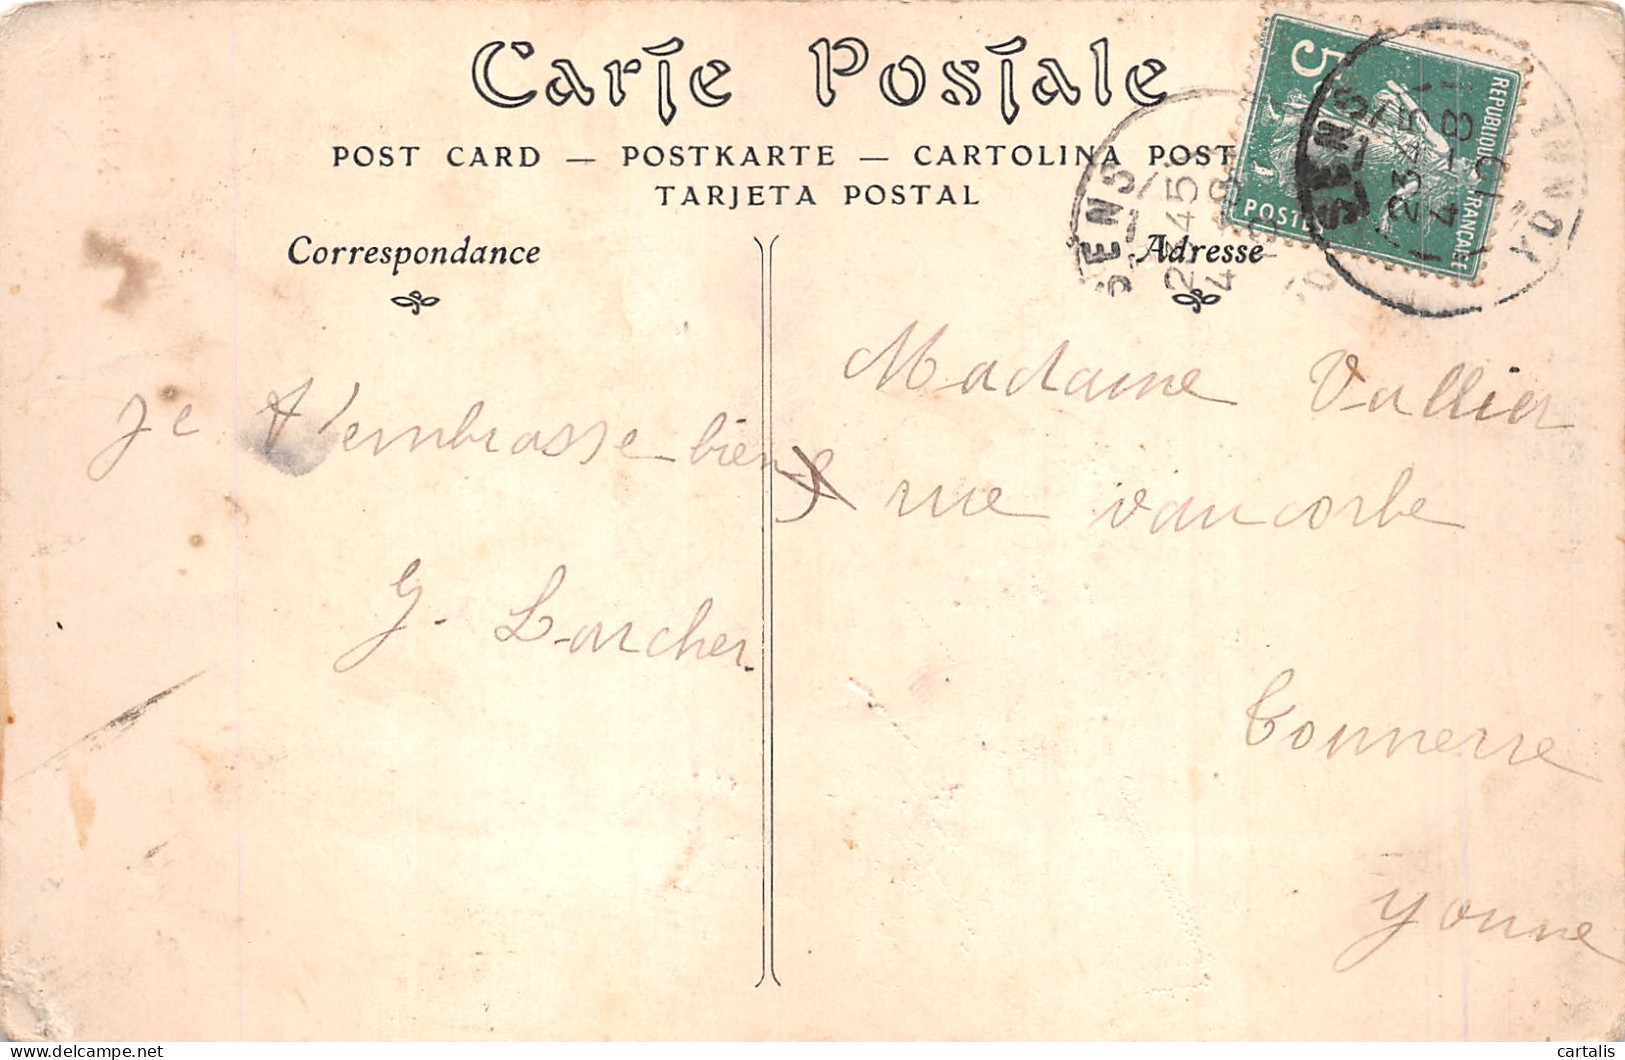 Carte Postale
POST CARD — POSTKARTE — CARTOLINA POST
TARJETA POSTAL
Correspondance
Adresse
5
REPUBLIQUE FRANÇAISE
POSTES
SENS
23 45
4 - 8
YONNE
SENS
23 45
4 - 8
Je t'embrasse bien
G. Larcher
Madame Vallier
rue vaucorbe
Tonnerre
Yonne
delcampe.net
cartalis